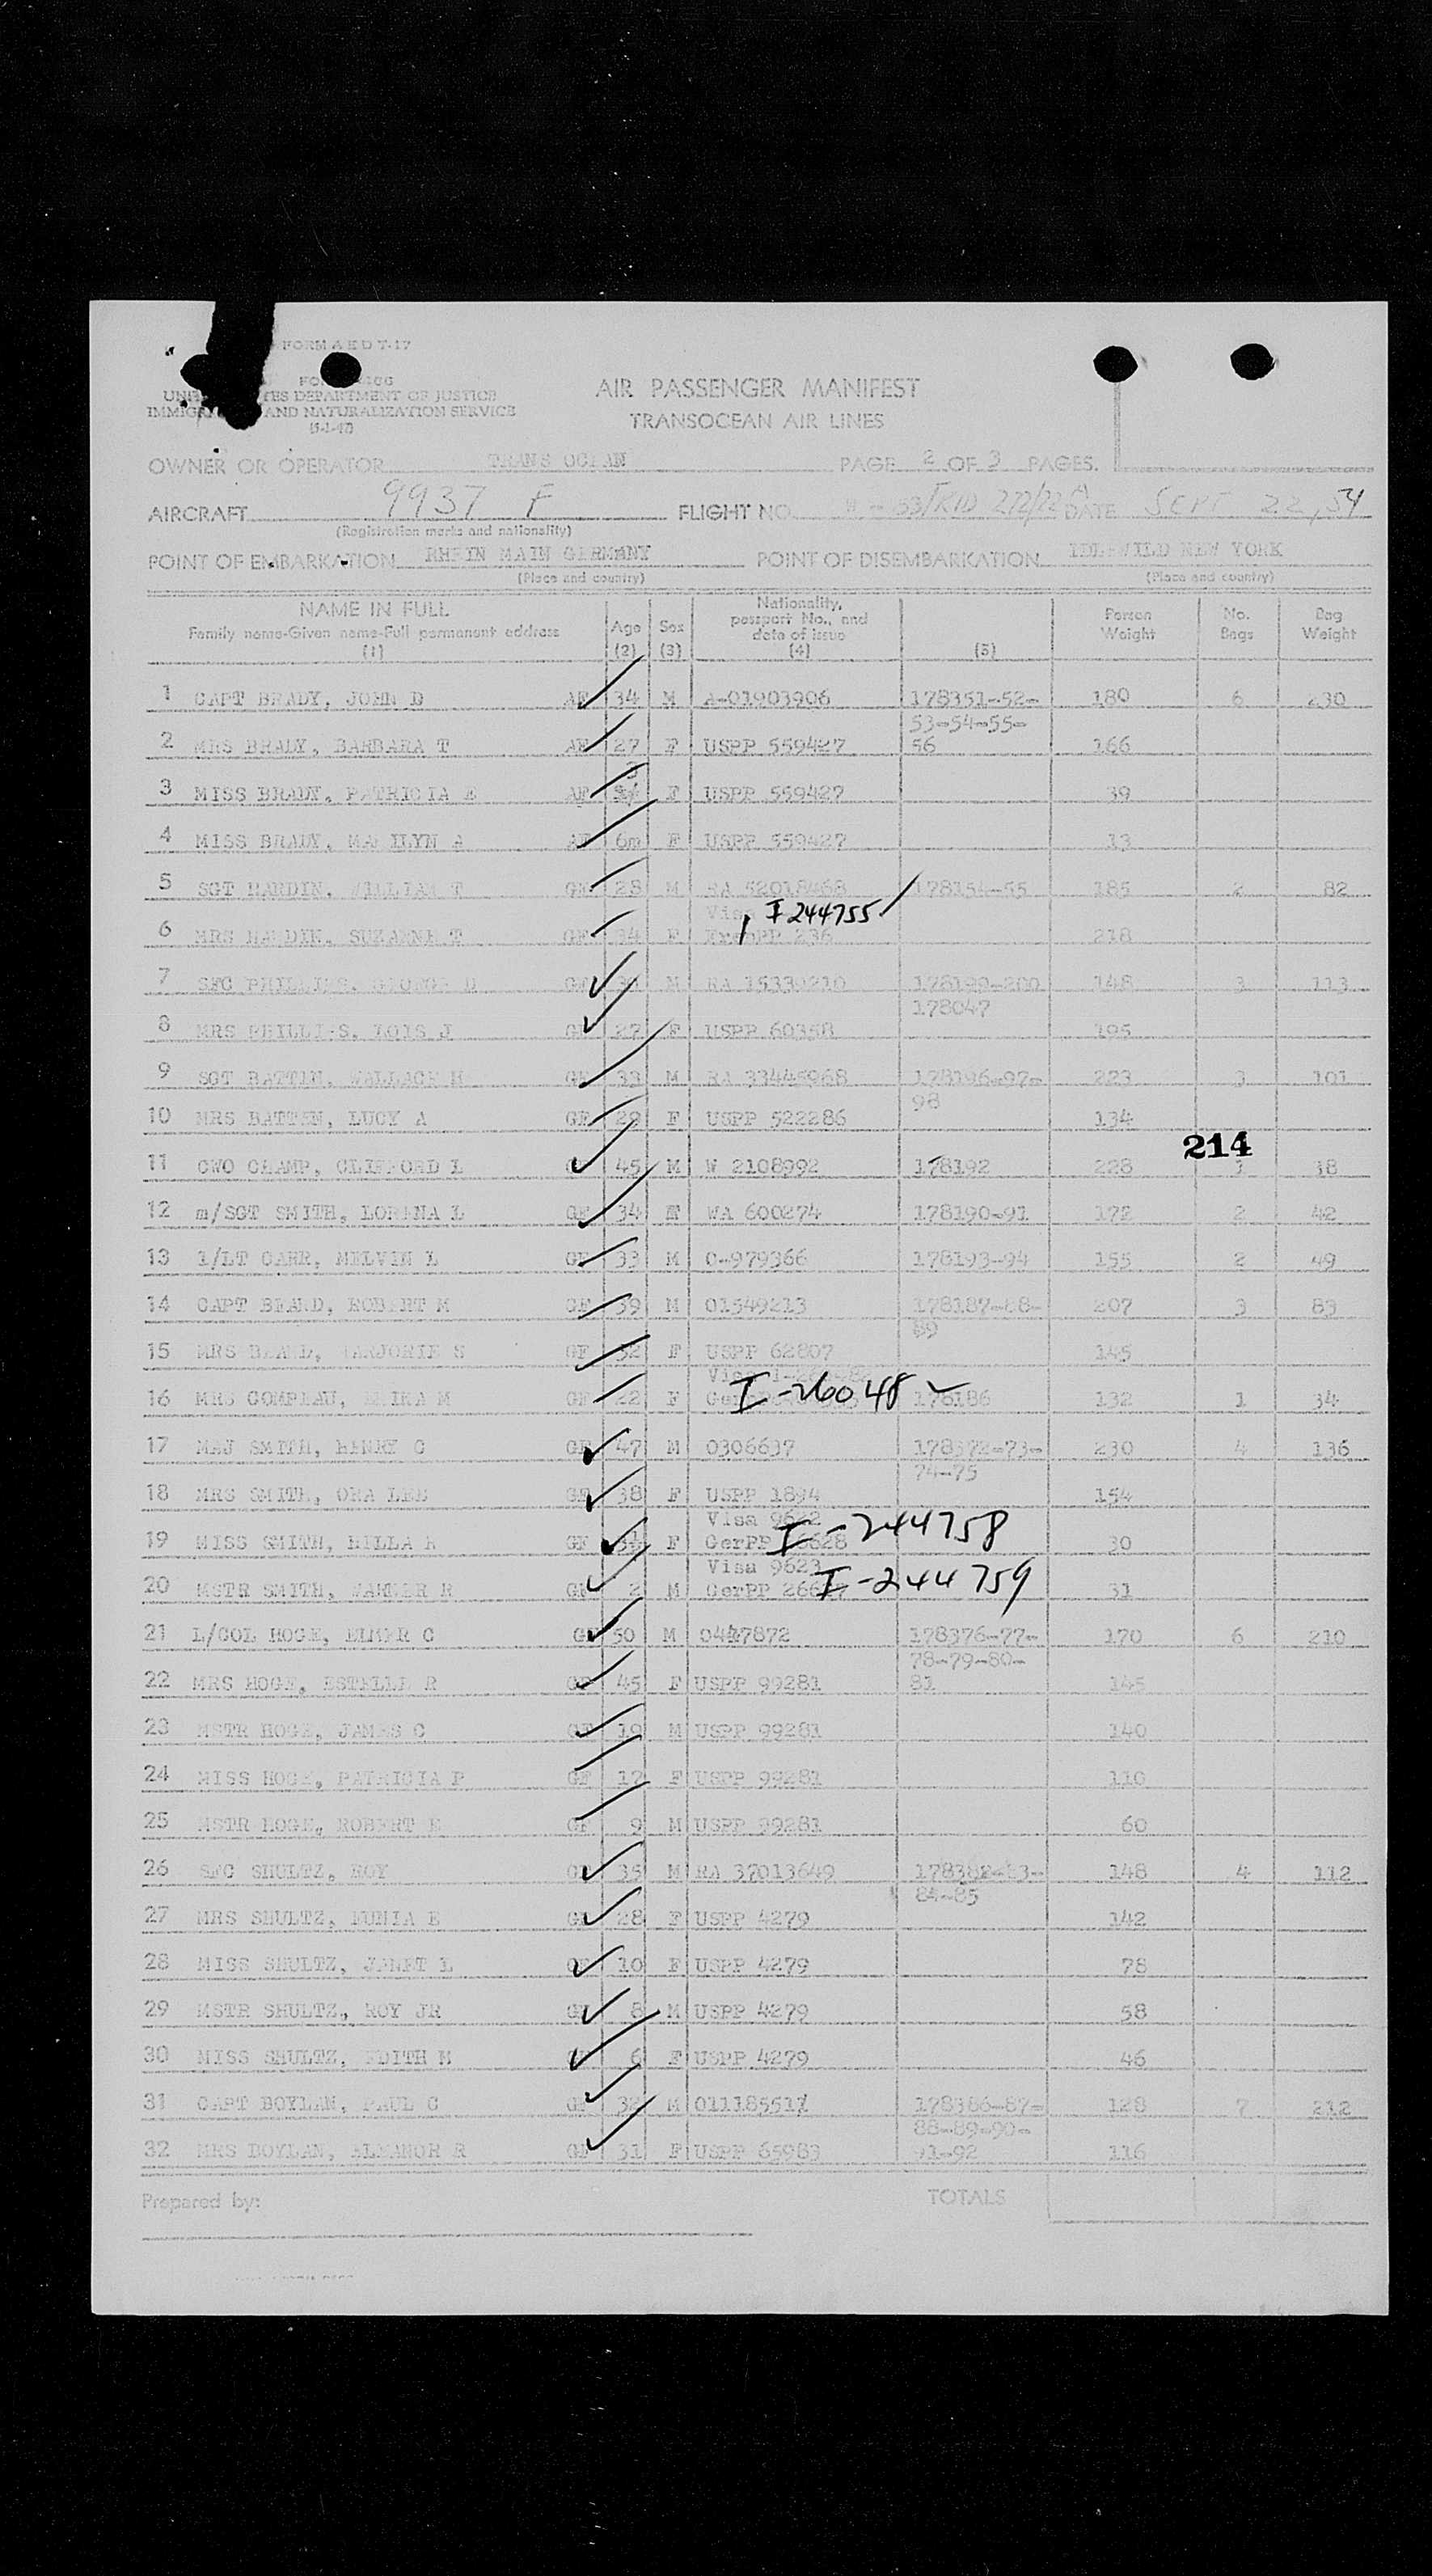 FORM A E D T-17
AIR PASSENGER MANIFEST
TRANSOCEAN AIR LINES
DEPARTMENT OF JUSTICE
AND NATURALIZATION SERVICE
OWNER OR OPERATOR TRANS OCEAN PAGE 2 OF 3 PAGES.
AIRCRAFT 9937 F FLIGHT NO. DATE SEPT 22, 54
(Registration marks and nationality)
POINT OF EMBARKATION RHEIN MAIN GERMANY POINT OF DISEMBARKATION IDLEWILD NEW YORK
(Place and country) (Place and country)
NAME IN FULL Nationality, passport No., and date of issue Person Weight No. Bags Bag Weight
Family name-Given name-Full permanent address Age Sex
(1) (2) (3) (4) (5)
1 CAPT BRADY, JOHN D AF 34 M A-01903906 178351-52- 180 6 230
53-54-55-
2 MRS BRADY, BARBARA T AF 27 F USPP 559427 56 166
3
3 MISS BRADY, PATRICIA E AF F USPP 559427 39
4 MISS BRADY, MARILYN A AF 6m F USPP 559427 13
5 SGT HARDIN, WILLIAM T GF 28 M RA 52018468 178154-55 185 2 82
Visa I 244755
6 MRS HARDIN, SUZANNE T GF 34 F PP 236 218
7 SFC PHILLIPS, GEORGE D GF M RA 15339210 178199-200 148 3 113
178047
8 MRS PHILLIPS, LOIS J GF 27 F USPP 60358 195
9 SGT BATTEN, WALLACE H GF 33 M RA 33445968 178196-97- 223 3 101
98
10 MRS BATTEN, LUCY A GF 29 F USPP 522286 134
214
11 CWO CHAMP, CLIFFORD L 45 M W 2108992 178192 228 38
12 m/SGT SMITH, LORENA L GF 34 F WA 600274 178190-91 172 2 42
13 1/LT CARR, MELVIN L GF 33 M O-979366 178193-94 155 2 49
14 CAPT BEARD, ROBERT M GF 39 M 01549213 178187-88- 207 3 83
89
15 MRS BEARD, MARJORIE S GF 32 F USPP 62807 145
16 MRS COMPEAU, ERIKA M GF 22 F I-26048 178186 132 1 34
17 MAJ SMITH, HENRY C GF 47 M 0306637 178372-73- 230 4 136
74-75
18 MRS SMITH, ORA LEE GF 38 F USPP 1894 154
Visa 9622
19 MISS SMITH, HILLA R GF F GerPP I-244758 30
Visa 9623
20 MSTR SMITH, R GF 2 M GerPP I-244759 31
21 L/COL HOGE, ELMER C GF 50 M 0447872 178376-77- 170 6 210
78-79-80-
22 MRS HOGE, ESTELLE R GF 45 F USPP 99281 81 145
23 MSTR HOGE, JAMES C GF 19 M USPP 99281 140
24 MISS HOGE, PATRICIA P GF 12 F USPP 99281 110
25 MSTR HOGE, ROBERT E GF 9 M USPP 99281 60
26 SFC SHULTZ, ROY GF 35 M RA 37013649 178382-83- 148 4 112
84-85
27 MRS SHULTZ, EUNIA E GF 28 F USPP 4279 142
28 MISS SHULTZ, JANET L GF 10 F USPP 4279 78
29 MSTR SHULTZ, ROY JR GF 8 M USPP 4279 58
30 MISS SHULTZ, EDITH M GF 6 F USPP 4279 46
31 CAPT BOYLAN, PAUL C GF 32 M 01118551 178386-87- 128 7 212
88-89-90-
32 MRS BOYLAN, ELEANOR R GF 31 F USPP 65983 91-92 116
Prepared by: TOTALS